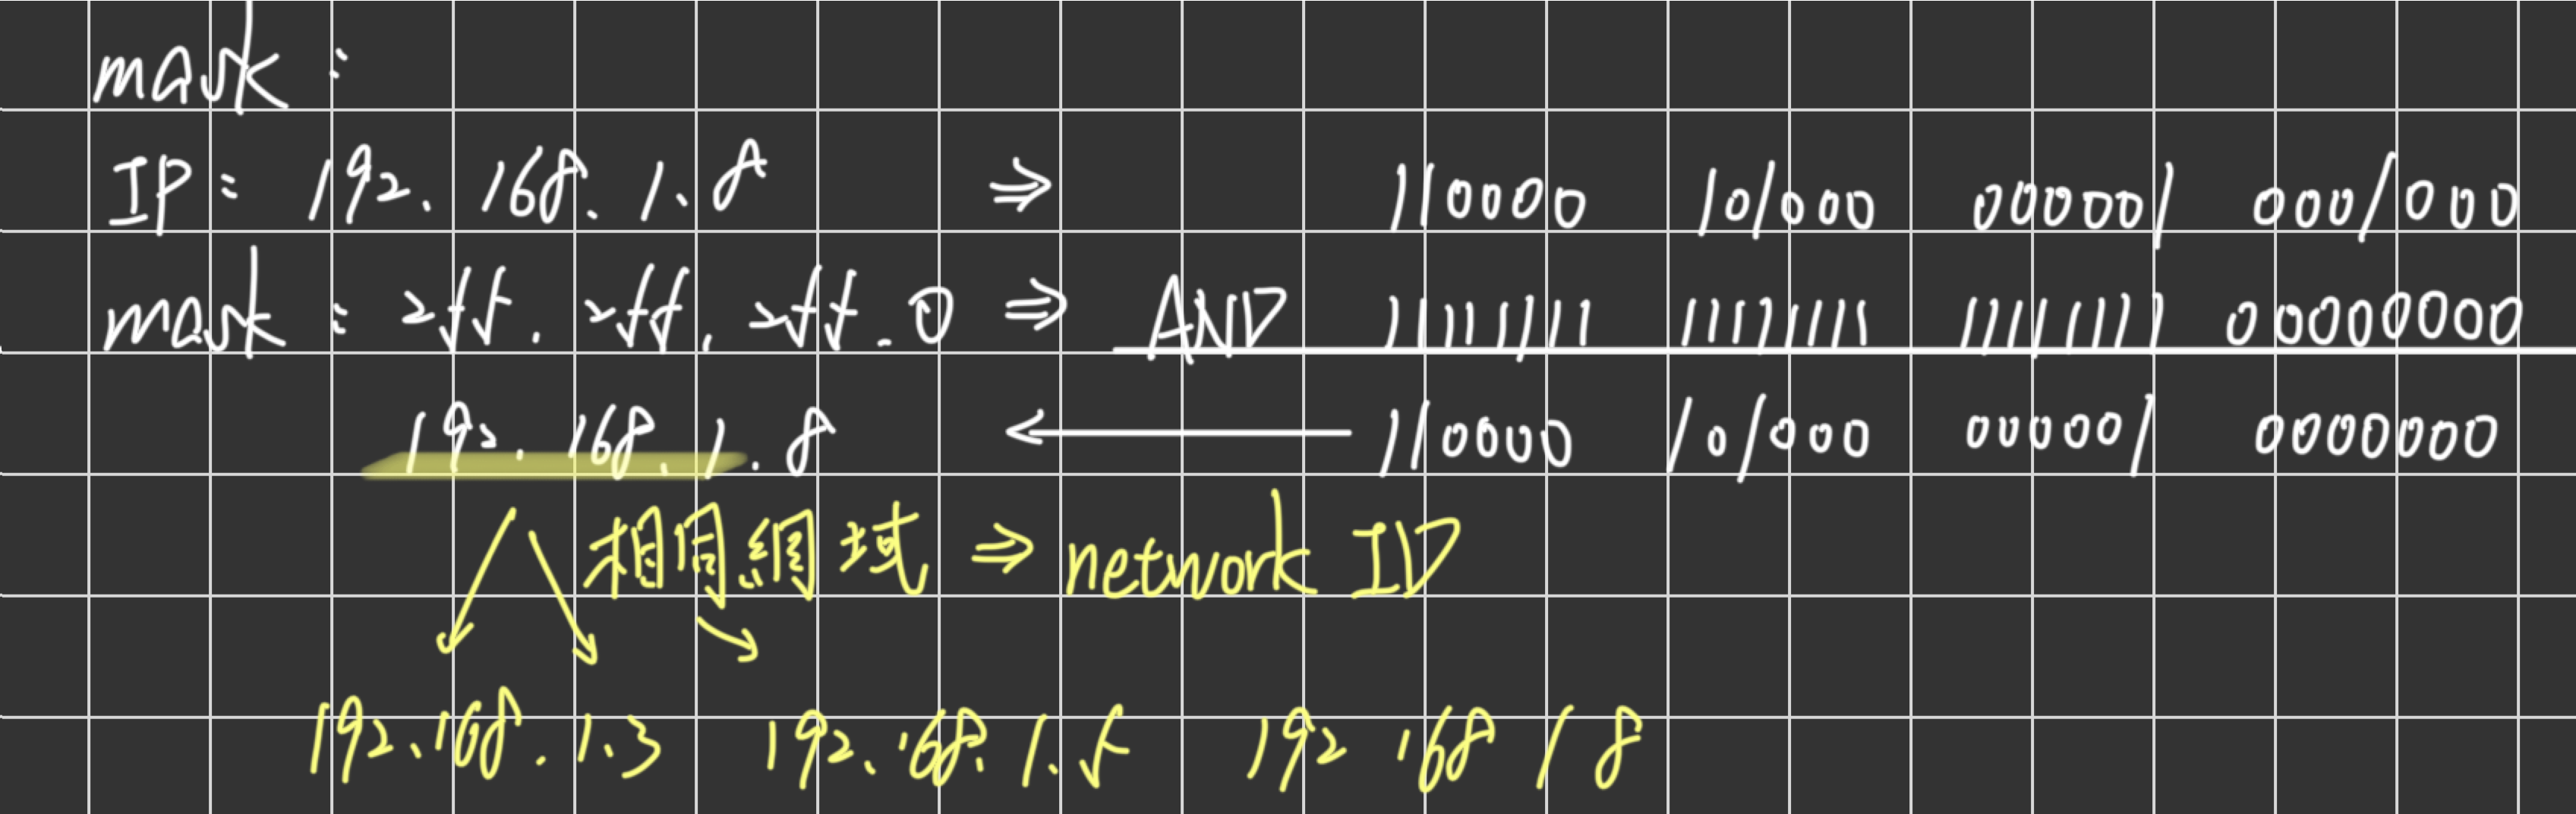 mask :
IP : 192. 168. 1. 8 ⇒ 110000 101000 000001 0001000
mask : 255. 255. 255. 0 ⇒ AND 11111111 11111111 11111111 00000000
192. 168. 1. 8 ← 110000 101000 000001 0000000
相同網域 ⇒ network ID
192.168.1.3 192.168.1.5 192 168 1 8